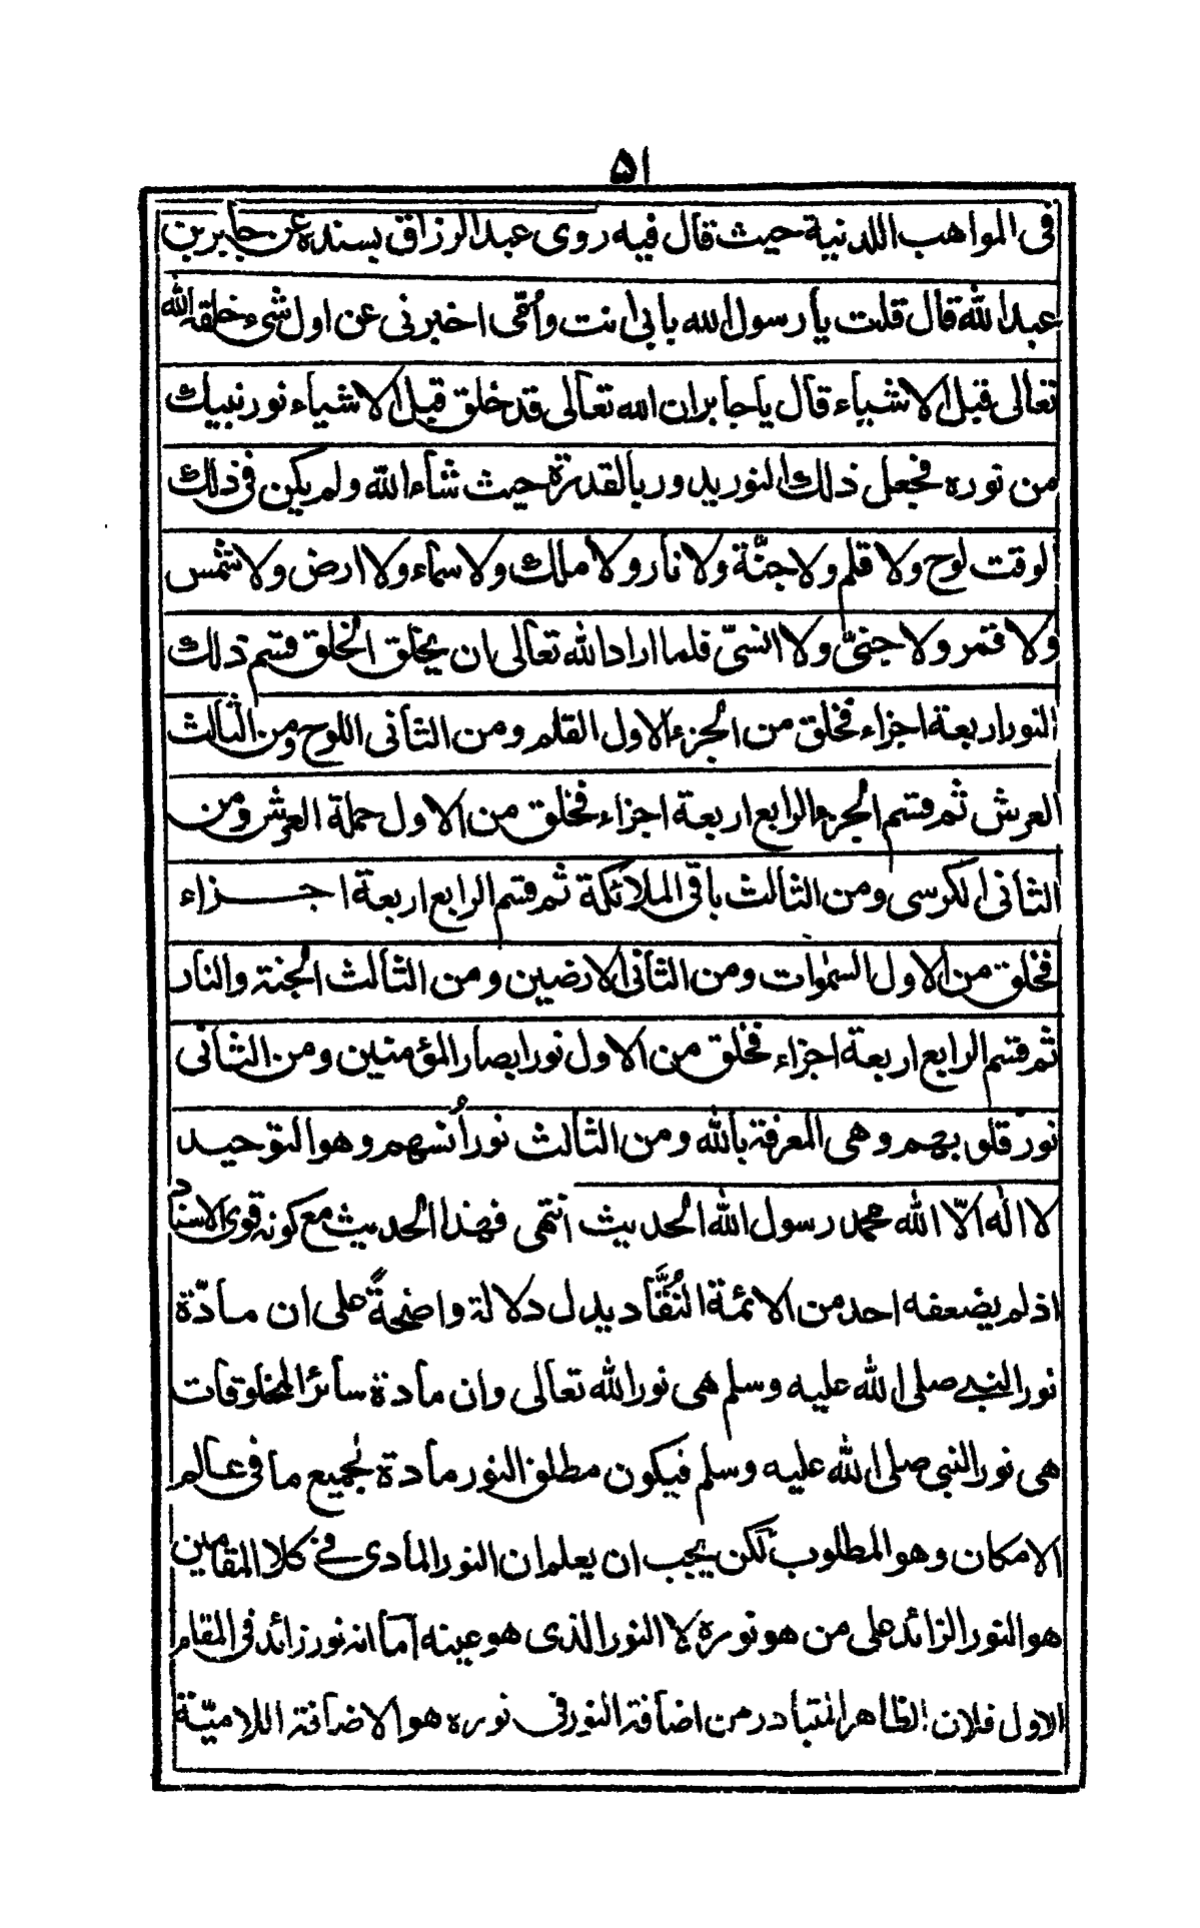 ۵۱
فی المواهب اللدنیة حیث قال فیه روی عبدالرزاق بسنده عن جابر بن
عبدالله قال قلت یا رسول الله بابی انت وأُمّی اخبرنی عن اول شیء خلقه الله
تعالی قبل الاشیاء قال یا جابر ان الله تعالی قد خلق قبل الاشیاء نور نبیك
من نوره فجعل ذلك النور یدور بالقدرة حیث شاء الله ولم یکن فی ذلك
الوقت لوح ولا قلم ولا جنّة ولا نار ولا ملك ولا سماء ولا ارض ولا شمس
ولا قمر ولا جنیّ ولا انسیّ فلما اراد الله تعالی ان یخلق الخلق قسم ذلك
النور اربعة اجزاء فخلق من الجزء الاول القلم ومن الثانی اللوح ومن الثالث
العرش ثم قسم الجزء الرابع اربعة اجزاء فخلق من الاول حملة العرش ومن
الثانی الکرسی ومن الثالث باقی الملائکة ثم قسم الرابع اربعة اجزاء
فخلق من الاول السمٰوات ومن الثانی الارضین ومن الثالث الجنة والنار
ثم قسم الرابع اربعة اجزاء فخلق من الاول نور ابصار المؤمنین ومن الثانی
نور قلوبهم وهی المعرفة بالله ومن الثالث نور اُنسهم وهو التوحید
لا اله الّا الله محمد رسول الله الحدیث انتهی فهذا الحدیث مع کونه قوی الاسناد
اذ لم یضعفه احد من الائمة النُقَّاد یدل دلالة واضحةً علی ان مادّة
نور النبی صلی الله علیه وسلم هی نور الله تعالی وان مادة سائر المخلوقات
هی نور النبی صلی الله علیه وسلم فیکون مطلق النور مادة لجمیع ما فی عالم
الامکان وهو المطلوب لکن یجب ان یعلم ان النور المادی فی کلا المقامین
هو النور الزائد علی من هو نوره لا النور الذی هو عینه اما انه نور زائد فی المقام
الاول فلان الظاهر المتبادر من اضافة النور فی نوره هو الاضافة اللامیّة